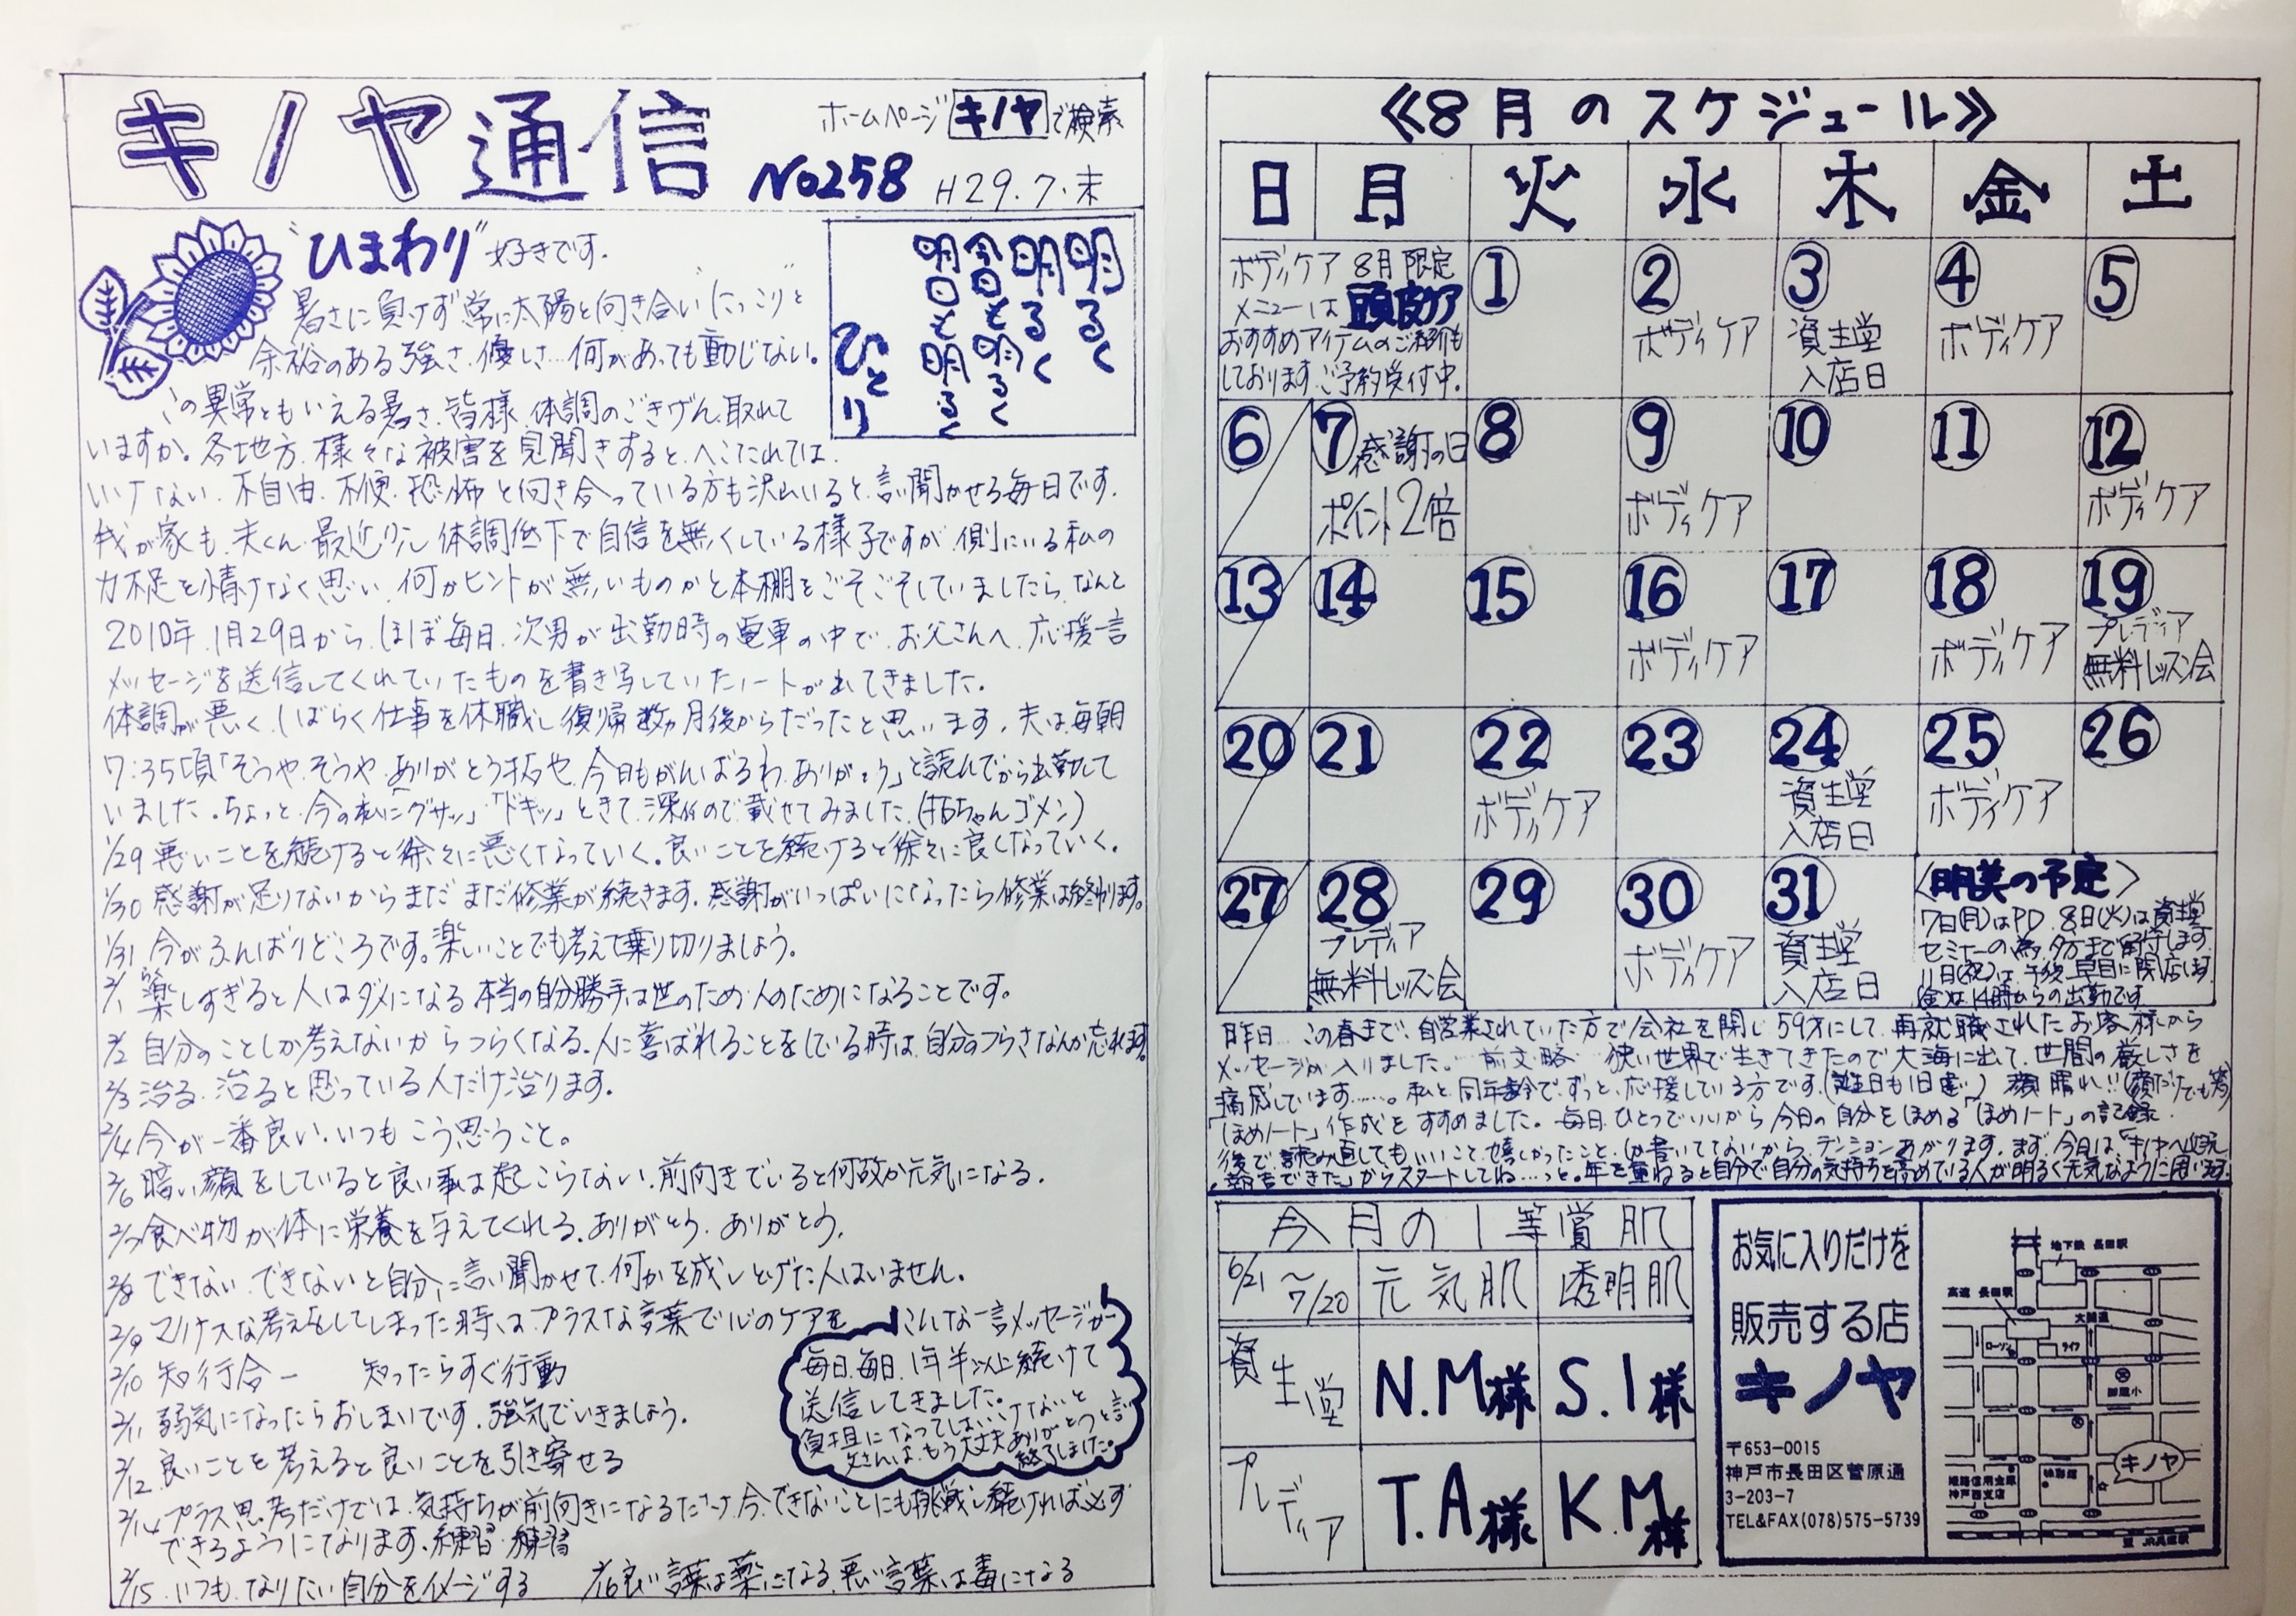 キノヤ通信
ホームページ キノヤ で検索
No258 H29.7.末
"ひまわり" 好きです。
暑さに負けず常に太陽と向き合い"にっこり"と
余裕のある強さ、優しさ…何があっても動じない。
この異常ともいえる暑さ、皆様、体調のごきげん、取れて
いますか。各地方、様々な被害を見聞きすると、へこたれては
いけない、不自由、不便、恐怖と向き合っている方も沢山いると、言い聞かせる毎日です。
我が家も、夫くん、最近少し体調低下で自信を無くしている様子ですが、側にいる私の
力不足と情けなく思い、何かヒントが無いものかと本棚をごそごそしていましたら、なんと
2010年、1月29日から、ほぼ毎日、次男が出勤時の電車の中で、お父さんへ、応援一言
メッセージを送信してくれていたものを書き写していたノートが出てきました。
体調が悪く、しばらく仕事を休職し復帰数ヶ月後からだったと思います、夫は毎朝
7:35頃「そうや、そうや、ありがとう拓也、今日もがんばるわ、ありがとう」と読んでから出勤して
いました。ちょっと、今の私に「グサッ」「ドキッ」ときて、深いので載せてみました。(拓ちゃんゴメン)
明るく
明るく
今日も明るく
明日も明るく
ひとり
1/29 悪いことを続けると徐々に悪くなっていく。良いことを続けると徐々に良くなっていく。
1/30 感謝が足りないからまだまだ修業が続きます。感謝がいっぱいになったら修業は終ります。
1/31 今がふんばりどころです。楽しいことでも考えて乗り切りましょう。
2/1 楽しすぎると人はダメになる 本当の自分勝手は世のため人のためになることです。
2/2 自分のことしか考えないからつらくなる。人に喜ばれることをしている時は、自分のつらさなんか忘れます。
2/3 治る、治ると思っている人だけ治ります。
2/4 今が一番良い、いつもこう思うこと。
2/6 暗い顔をしていると良い事は起こらない、前向きでいると何故か元気になる。
2/7 食べ物が体に栄養を与えてくれる。ありがとう、ありがとう。
2/8 できない、できないと自分に言い聞かせて、何かを成しとげた人はいません。
2/9 マイナスな考えをしてしまった時は、プラスな言葉で心のケアを
2/10 知行合一 知ったらすぐ行動
2/11 弱気になったらおしまいです、強気でいきましょう。
2/12 良いことを考えると良いことを引き寄せる
2/14 プラス思考だけでは、気持ちが前向きになるだけ、今、できないことにも挑戦し続ければ必ず
できるようになります、練習、練習
2/15 いつも、なりたい自分をイメージする 2/16 良い言葉は薬になる、悪い言葉は毒になる
こんな一言メッセージが
毎日、毎日、1年半以上続けて
送信してきました。
負担になってしまいけないと
父さんは、もう大丈夫ありがとうと言
終了しました。
≪8月のスケジュール≫
日 月 火 水 木 金 土
ボディケア 8月限定
メニューは 頭皮ケア
おすすめアイテムのご紹介も
しております。ご予約受付中。
1 2 3 4 5
ボディケア 資生堂 入店日 ボディケア
6 7 感謝の日 8 9 10 11 12
ポイント2倍 ボディケア ボディケア
13 14 15 16 17 18 19
ボディケア ボディケア プレディア 無料レッスン会
20 21 22 23 24 25 26
ボディケア 資生堂 入店日 ボディケア
27 28 29 30 31
プレディア 無料レッスン会 ボディケア 資生堂 入店日
〈明美の予定〉
7日(月)はPD、8日(火)は資生堂
セミナーの為、夕方まで留守します。
11日(祝)は、午後、早目に閉店します
(金)は14時からの出勤です
昨日… この春まで、自営業されていた方で会社を閉じ59才にして、再就職されたお客様から
メッセージが入りました。…前文略… 狭い世界で生きてきたので大海に出て、世間の厳しさを
痛感しています……。私と同年齢で、ずっと、応援している方です。(誕生日も1日違い) 顔晴れ!!(顔だけでも笑)
「ほめノート」作成をすすめました。毎日、ひとつでいいから今日の自分をほめる「ほめノート」の記録。
後で、読み直しても、いいこと、嬉しかったこと、しか書いてないから、テンションあがります。まず、今日は「キノヤへ近況
報告できた」からスタートしてね…っと。年を重ねると自分で自分の気持ちを高めている人が明るく元気なように思います。
今月の1等賞肌
6/21〜7/20 元気肌 透明肌
資生堂 N.M様 S.I様
プレディア T.A様 K.M様
お気に入りだけを
販売する店
キノヤ
〒653-0015
神戸市長田区菅原通
3-203-7
TEL&FAX(078)575-5739
地下鉄 長田駅
高速 長田駅
大開通
ローソン
ライフ
キノヤ
姫路信用金庫
神戸西支店